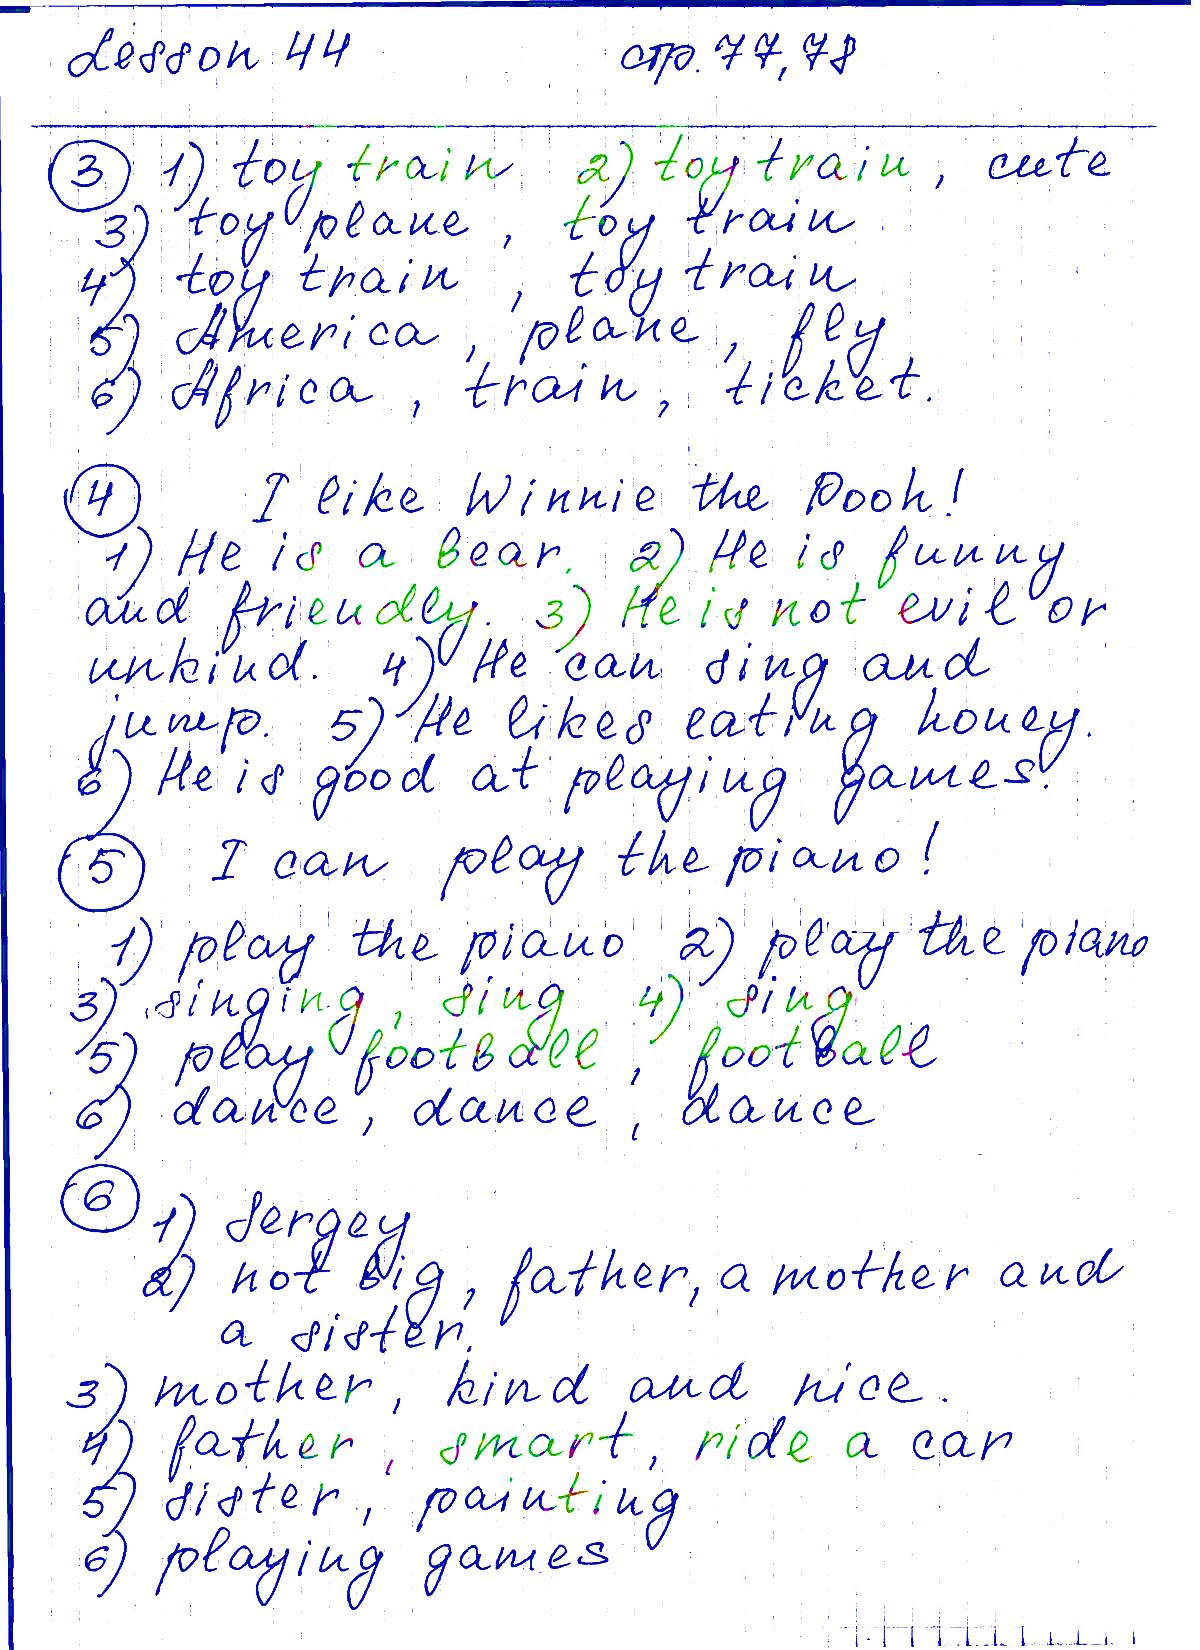 Lesson 44 стр. 77, 78
3 1) toy train 2) toy train, cute
3) toy plane, toy train
4) toy train, toy train
5) America, plane, fly
6) Africa, train, ticket.
4 I like Winnie the Pooh!
1) He is a bear. 2) He is funny
and friendly. 3) He is not evil or
unkind. 4) He can sing and
jump. 5) He likes eating honey.
6) He is good at playing games.
5 I can play the piano!
1) play the piano 2) play the piano
3) singing, sing 4) sing
5) play football, football
6) dance, dance, dance
6 1) Sergey
2) not big, father, a mother and
a sister.
3) mother, kind and nice.
4) father, smart, ride a car
5) sister, painting
6) playing games